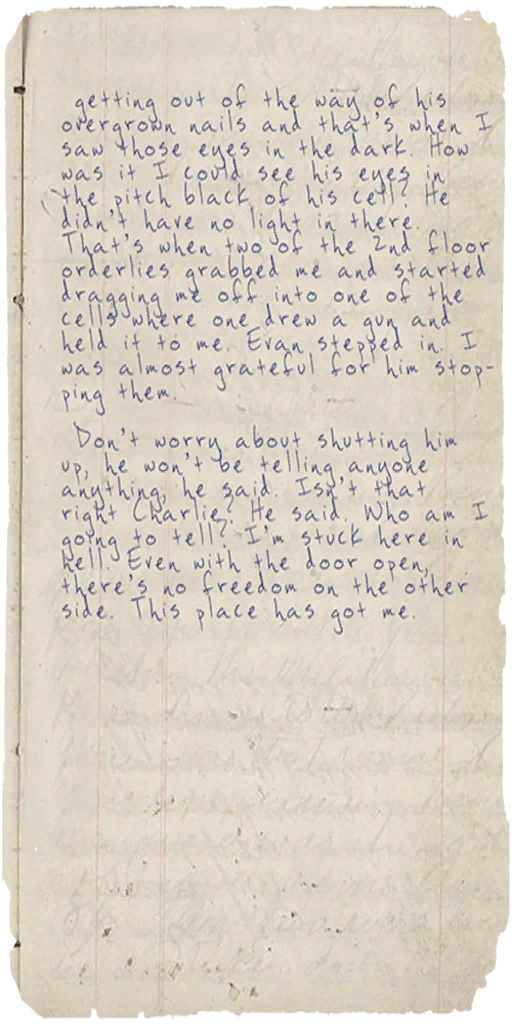 getting out of the way of his
overgrown nails and that's when I
saw those eyes in the dark. How
was it I could see his eyes in
the pitch black of his cell? He
didn't have no light in there.
That's when two of the 2nd floor
orderlies grabbed me and started
dragging me off into one of the
cells where one drew a gun and
held it to me. Evan stepped in. I
was almost grateful for him stop-
ping them.
Don't worry about shutting him
up, he won't be telling anyone
anything, he said. Isn't that
right Charlie? He said. Who am I
going to tell? I'm stuck here in
hell. Even with the door open,
there's no freedom on the other
side. This place has got me.